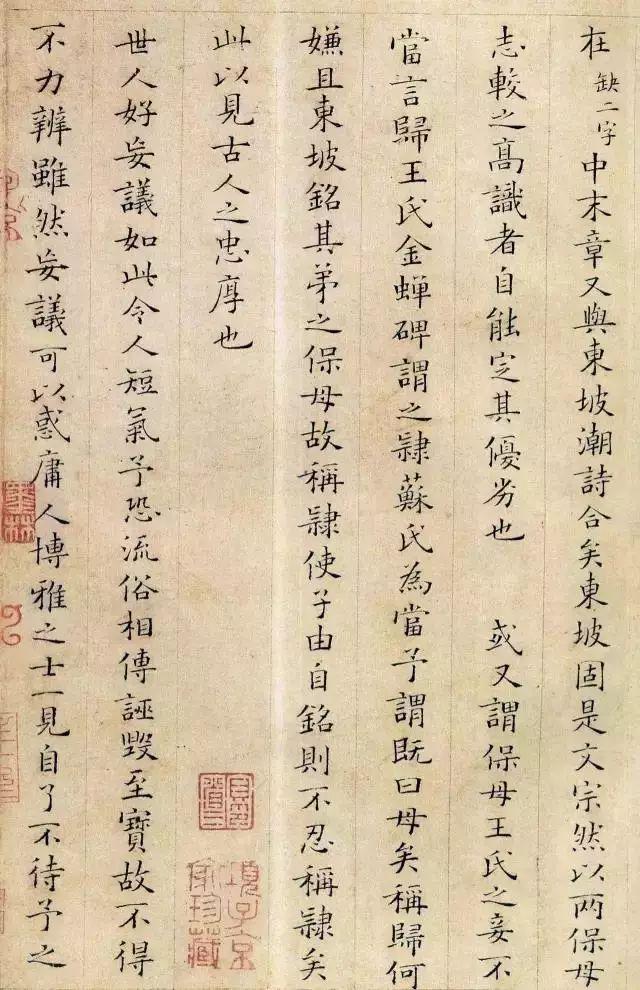 在缺二字中末章又與東坡潮詩合矣東坡固是文宗然以两保母
志較之高識者自能定其優劣也 或又謂保母王氏之妾不
當言歸王氏金蟬碑謂之隸蘇氏為當予謂既曰母矣稱歸何
嫌且東坡銘其弟之保母故稱隸使子由自銘則不忍稱隸矣
此以見古人之忠厚也
世人好妄議如此令人短氣予恐流俗相傳誣毀至寶故不得
不力辨雖然妄議可以惑庸人博雅之士一見自了不待予之
項子京
家珍藏